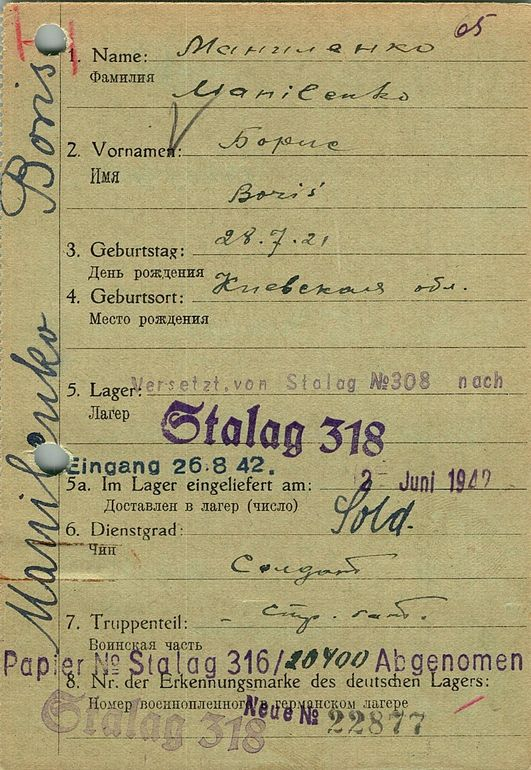 05
1. Name: Маниленко
Фамилия
Manilenko
2. Vornamen: Борис
Имя
Boris
3. Geburtstag: 28.7.21
День рождения
4. Geburtsort: Киевская обл.
Место рождения
5. Lager: Versetzt von Stalag №308 nach
Лагер
Stalag 318
Eingang 26.8 42.
5a. Im Lager eingeliefert am: 2. Juni 1942
Доставлен в лагер (число)
Sold.
6. Dienstgrad:
Чин
Солдат
7. Truppenteil: - стр. бат.
Воинская часть
Papier № Stalag 316/20400 Abgenomen
8. Nr. der Erkennungsmarke des deutschen Lagers:
Номер военнопленного в германском лагере
Neue № 22877
Stalag 318
Manilenko Boris